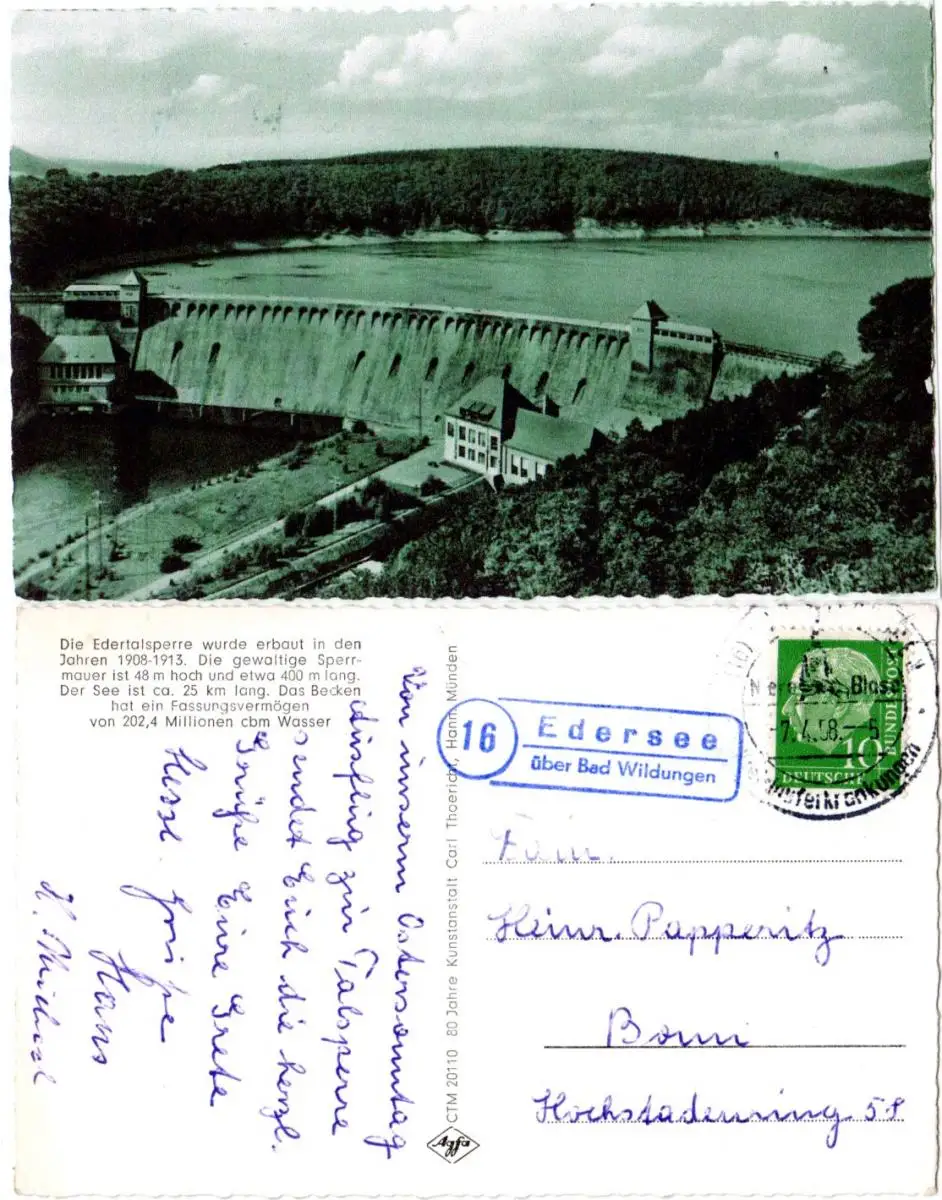 Die Edertalsperre wurde erbaut in den
Jahren 1908-1913. Die gewaltige Sperr-
mauer ist 48 m hoch und etwa 400 m lang.
Der See ist ca. 25 km lang. Das Becken
hat ein Fassungsvermögen
von 202,4 Millionen cbm Wasser
Von unserm Ostersonntag
Ausflug zur Talsperre
sendet Euch die herzl.
Grüße Eure Grete
Herzl. Grüße
Hans
CTM 20110 80 Jahre Kunstanstalt Carl Thoericht, Hann. Münden
Agfa
16
Edersee
über Bad Wildungen
Blase
-7.4.58.-5
10
DEUTSCHE
BUNDESPOST
Fam.
Heinr. Papperitz
Bonn
Hochstadenring 51